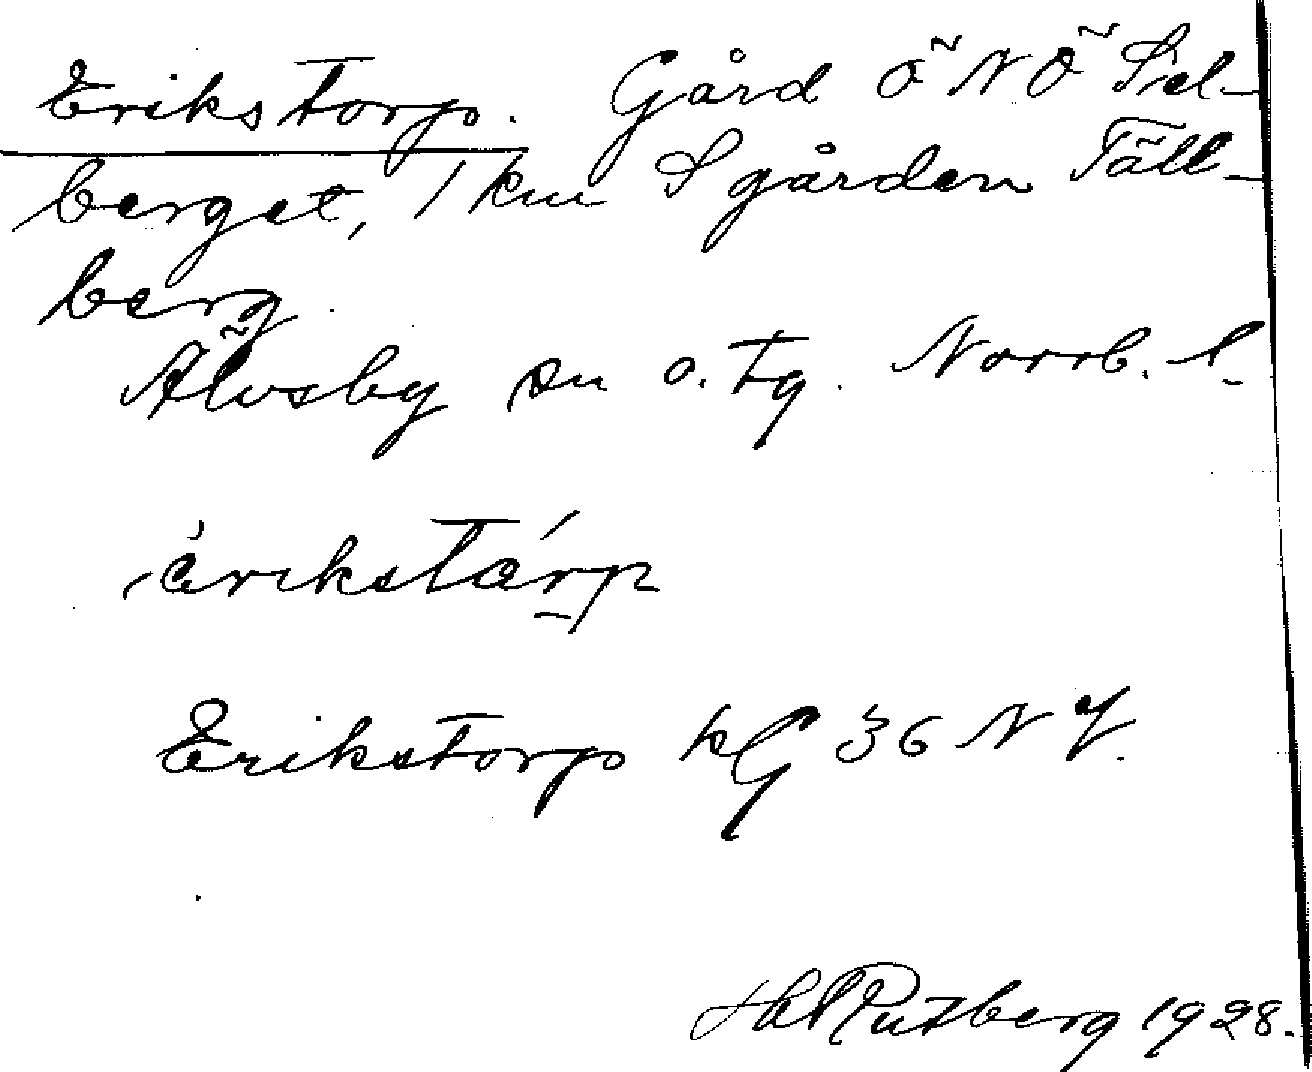 Erikstorp. Gård Ö NÖ Sel-
berget, 1 km S gården Fäll-
berg.
Älvsby sn o. tg. Norrb. l.
erikstarp
Erikstorp kG 36 NY.
Hd Rutberg 1928.